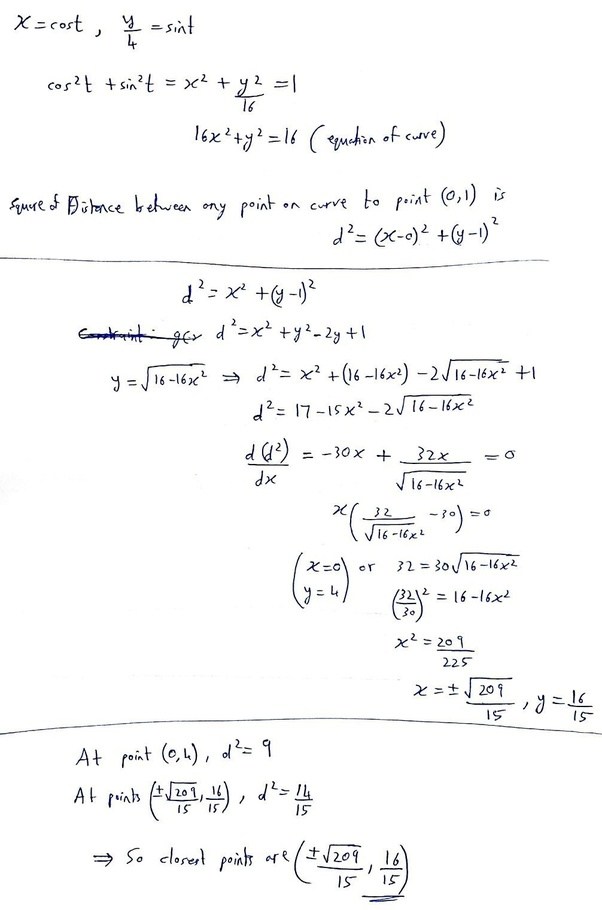 x = cost , y/4 = sint
cos²t + sin²t = x² + y²/16 = 1
16x² + y² = 16 (equation of curve)
Square of Distance between any point on curve to point (0,1) is
d² = (x-0)² + (y-1)²
d² = x² + (y-1)²
d² = x² + y² - 2y + 1
y = √(16-16x²) ⇒ d² = x² + (16-16x²) - 2√(16-16x²) + 1
d² = 17 - 15x² - 2√(16-16x²)
d(d²)/dx = -30x + 32x/√(16-16x²) = 0
x(32/√(16-16x²) - 30) = 0
(x=0 y=4) or 32 = 30√(16-16x²)
(32/30)² = 16-16x²
x² = 209/225
x = ±√209/15 , y = 16/15
At point (0,4) , d² = 9
At points (±√209/15, 16/15) , d² = 14/15
⇒ So closest points are (±√209/15, 16/15)